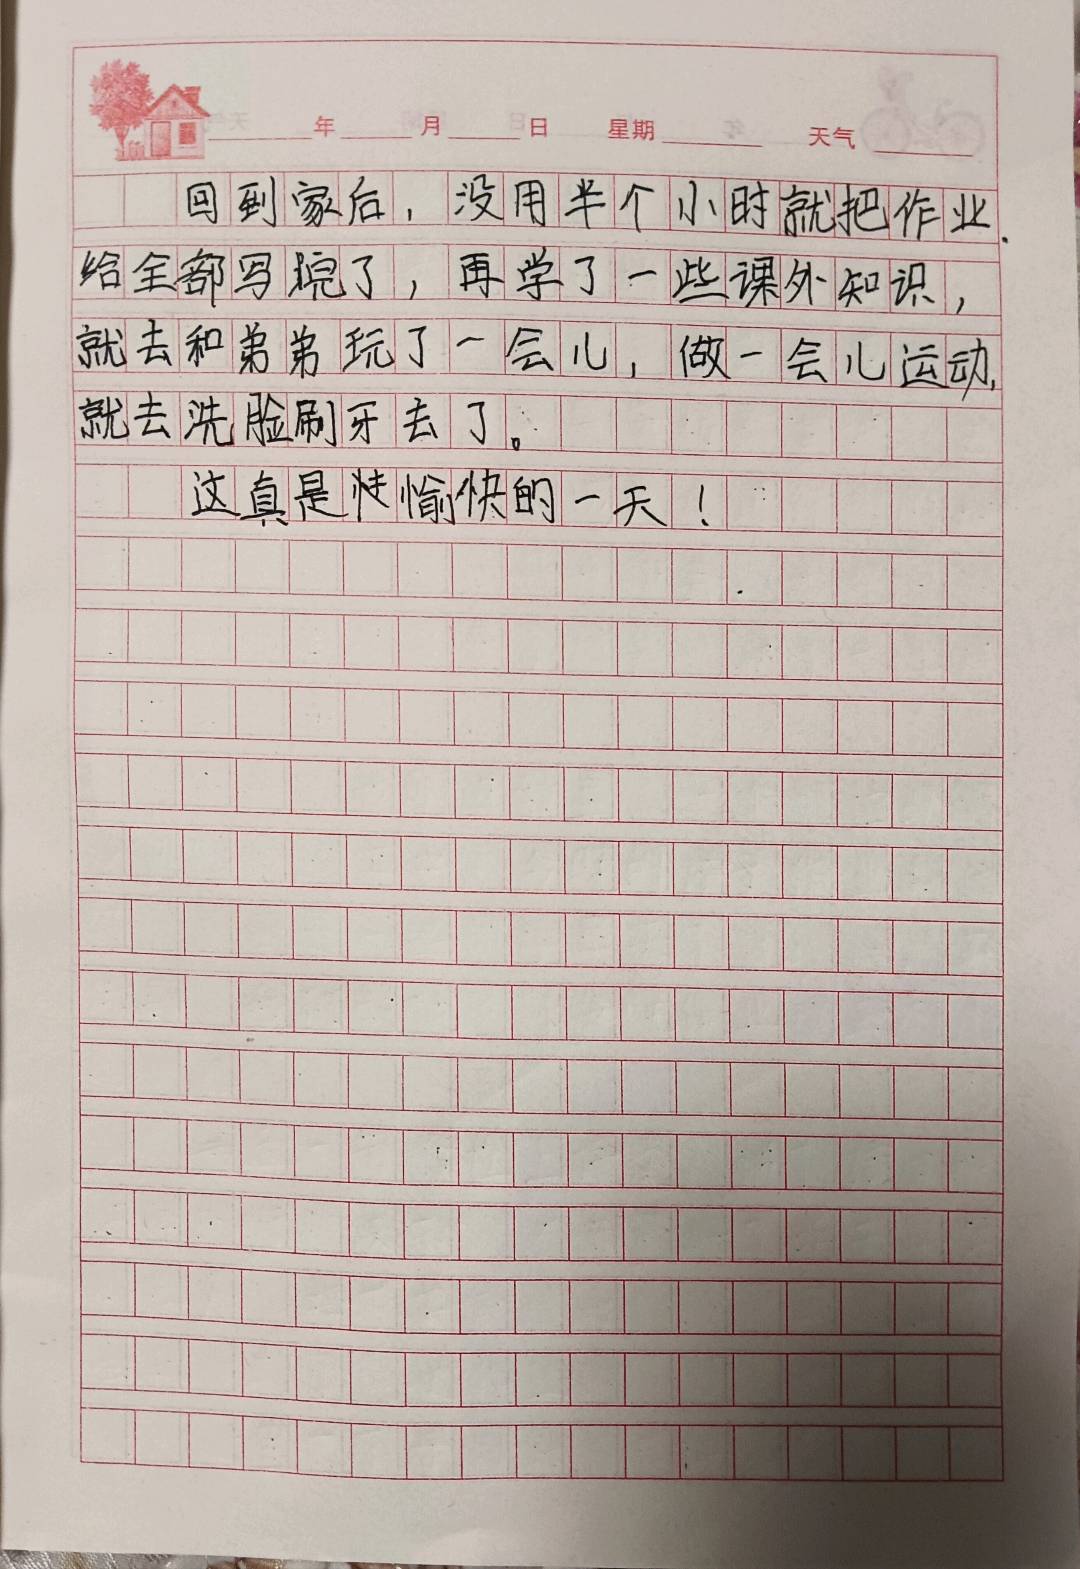 年 月 日 星期 天气
回到家后，没用半个小时就把作业.
给全部写琓了，再学了一些课外知识，
就去和弟弟玩了一会儿，做一会儿运动,
就去洗脸刷牙去了。
这真是愉快的一天！